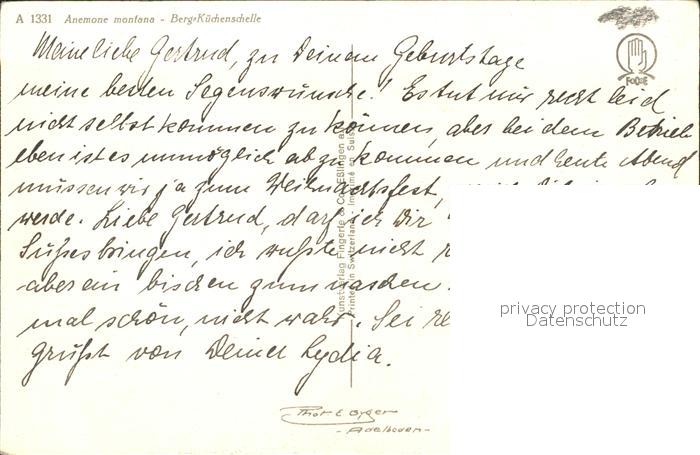 A 1331 Anemone montana - Berg-Küchenschelle
Meine liebe Gertrud, zu Deinem Geburtstage
meine besten Segenswünsche! Es tut mir recht leid
nicht selbst kommen zu können, aber bei dem Betrieb
eben ist es unmöglich abzukommen und heute Abend
müssen wir ja zum Weihnachtsfest,
werde. Liebe Gertrud, darf ich Dir
Süßes bringen, ich wußte nicht
aber ein bischen zum naschen.
mal schön, nicht wahr. Sei
grüßt von Deiner Lydia.
Kunstverlag Fingerle & Co., Eßlingen a.
Printed in Switzerland - Imprimé en Suisse
FOCE
privacy protection
Datenschutz
Phot. E. Gyger
- Adelboden -